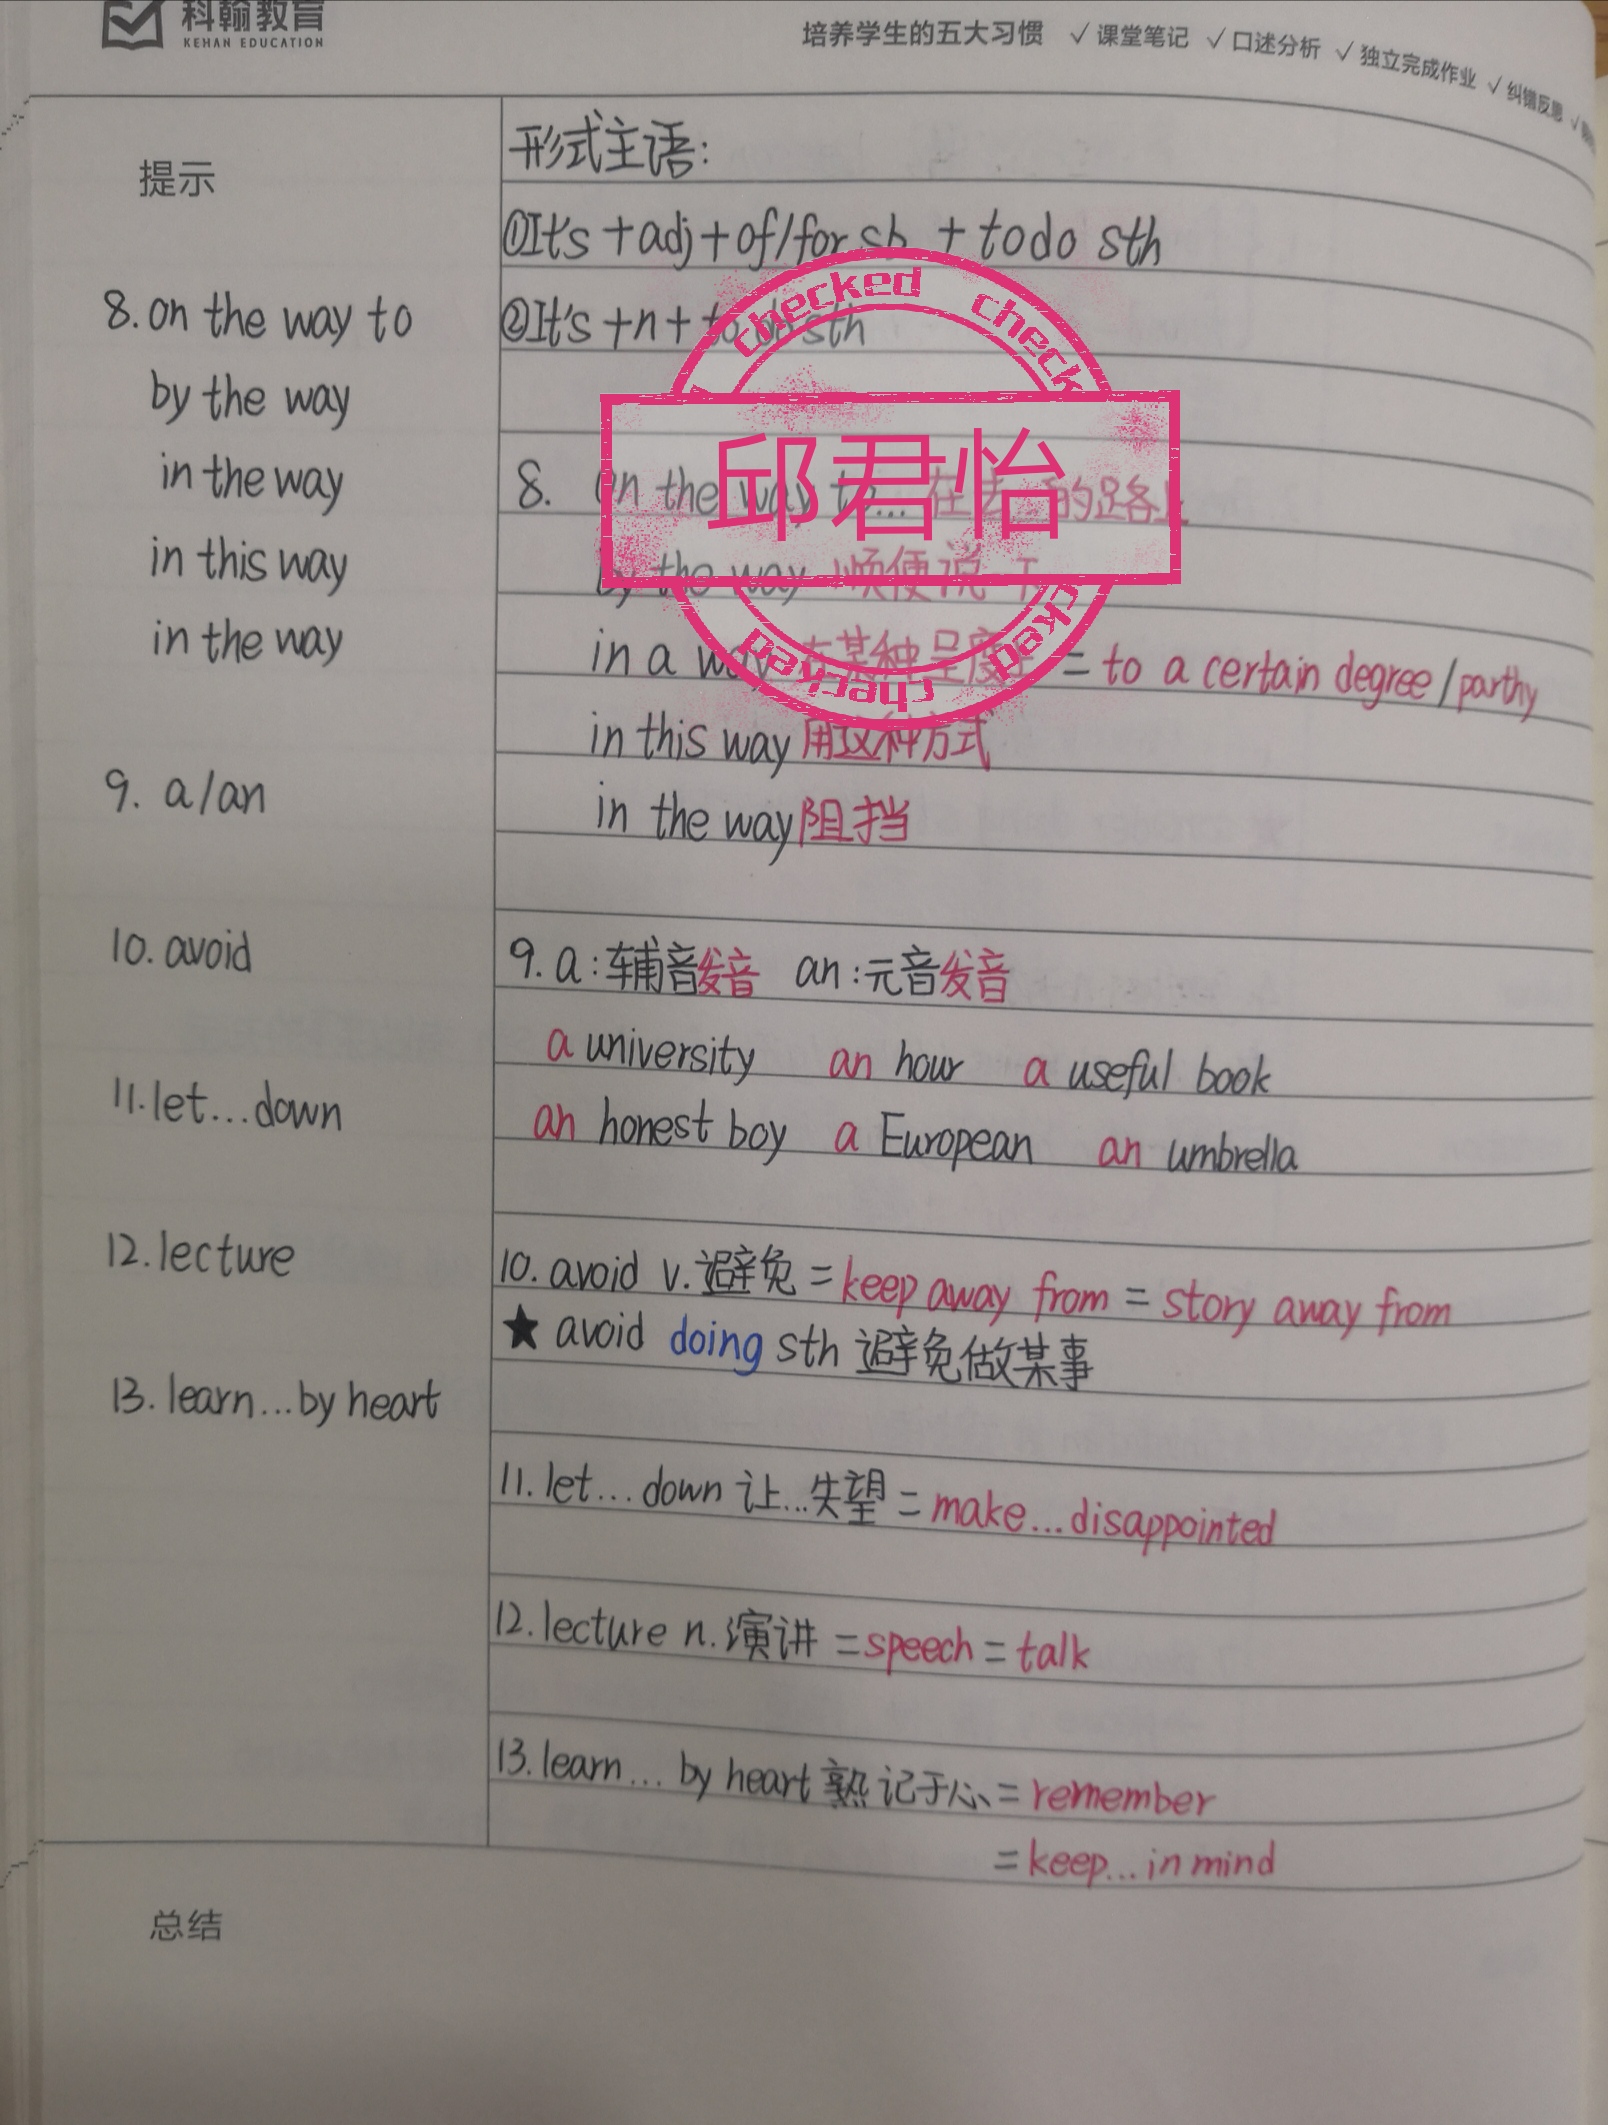 科翰教育
KEHAN EDUCATION
培养学生的五大习惯 √课堂笔记 √口述分析 √独立完成作业 √纠错反思 √
提示
8. on the way to
by the way
in the way
in this way
in the way
9. a/an
10. avoid
11. let...down
12. lecture
13. learn...by heart
形式主语:
①It's +adj+of/for sb + to do sth
②It's +n+ to do sth
8. on the way to... 在去...的路上
by the way 顺便说一下
in a way 在某种呈度上 = to a certain degree/parthy
in this way 用这种方式
in the way 阻挡
9. a:辅音发音 an:元音发音
a university an hour a useful book
an honest boy a European an umbrella
10. avoid v.避免 = keep away from = story away from
★ avoid doing sth 避免做某事
11. let...down 让...失望 = make...disappointed
12. lecture n.演讲 = speech = talk
13. learn... by heart 熟记于心 = remember
= keep...in mind
总结
checked checked
邱君怡
checked checked checked